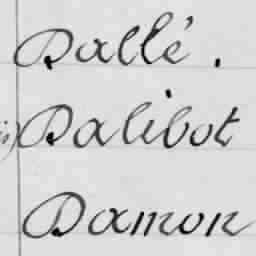 Dallé.
Dalibot
Damon